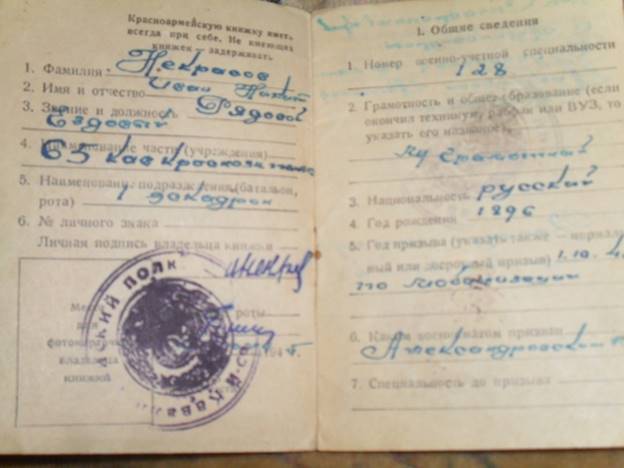 Красноармейскую книжку иметь
всегда при себе. Не имеющих
книжек - задерживать
1. Фамилия Некрасов
2. Имя и отчество Иван
3. Звание и должность Рядовой
Ездовый
4. Наименование части (учреждения)
63 кав
5. Наименование подразделения (батальон,
рота) 1 эскадрон
6. № личного знака
Личная подпись владельца книжки
роты
книжкой
ский полк
I. Общие сведения
1. Номер военно-учетной специальности
128
2. Грамотность и общее образование (если
окончил техникум, рабфак или ВУЗ, то
указать его название)
3. Национальность русский
4. Год рождения 1896
5. Год призыва (указать также - нормаль-
ный или досрочный призыв) 1.10.
по мобилизации
6. Каким военкоматом призван
Александровский
7. Специальность до призыва